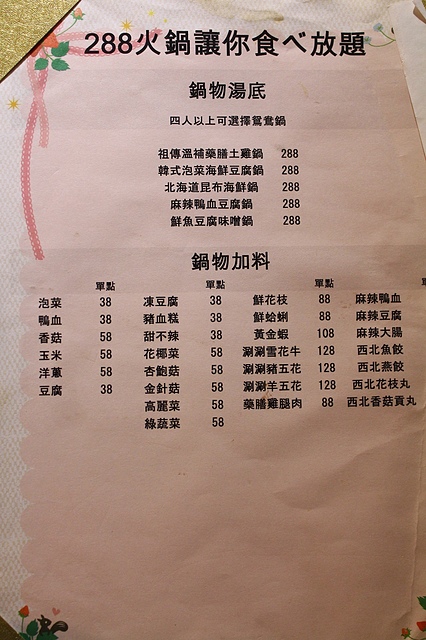 288火鍋讓你食べ放題
鍋物湯底
四人以上可選擇鴛鴦鍋
祖傳溫補藥膳土雞鍋 288
韓式泡菜海鮮豆腐鍋 288
北海道昆布海鮮鍋 288
麻辣鴨血豆腐鍋 288
鮮魚豆腐味噌鍋 288
鍋物加料
單點 單點 單點
泡菜 38 凍豆腐 38 鮮花枝 88 麻辣鴨血
鴨血 38 豬血糕 38 鮮蛤蜊 88 麻辣豆腐
香菇 58 甜不辣 38 黃金蝦 108 麻辣大腸
玉米 58 花椰菜 58 涮涮雪花牛 128 西北魚餃
洋蔥 58 杏鮑菇 58 涮涮豬五花 128 西北燕餃
豆腐 38 金針菇 58 涮涮羊五花 128 西北花枝丸
高麗菜 58 藥膳雞腿肉 88 西北香菇貢丸
綠蔬菜 58